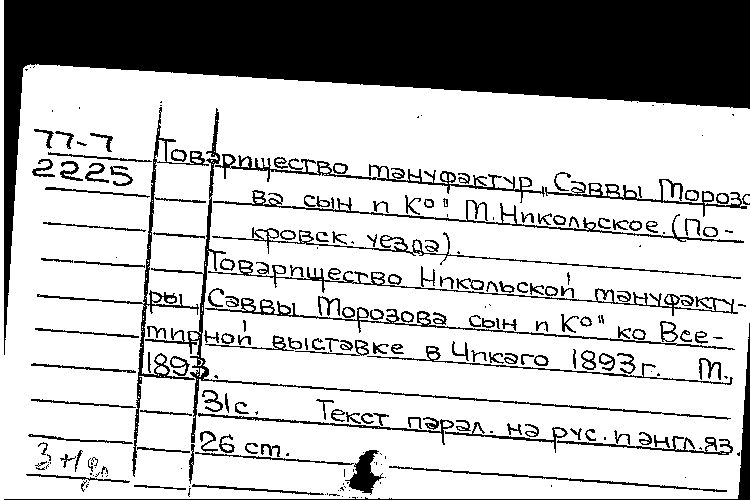 77-7
2225
Товарищество мануфактур „Саввы Морозо
ва сын и К°". М.Никольское.(По-
кровск. уезда).
Товарищество Никольской мануфакту-
ры „Саввы Морозова сын и К°" ко Все-
мирной выставке в Чикаго 1893г. М.,
1893.
31с. Текст парал. на рус. и англ.яз.
26 cm.